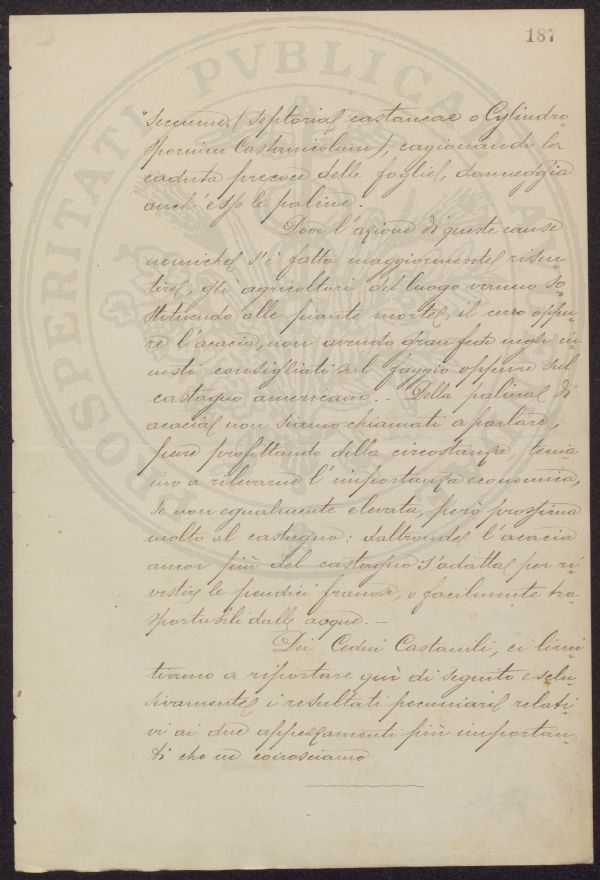 187
"seccume, (Septoria castaneae o Cylindro-
sporium Castanicolum), cagionando la
caduta precoce delle foglie, danneggia
anch'esso le paline.
Dove l'azione di queste cause
nemiche s'è fatta maggiormente risen-
tire, gli agricoltori del luogo vanno so-
stituendo alle piante morte, il cerro oppu-
re l'acacia, non avendo gran fede negli in-
nesti consigliati sul faggio oppure sul
castagno americano. - Della palina di
acacia non siamo chiamati a parlare,
pure profittando della circostanza, tenia-
mo a rilevarne l'importanza economica,
se non egualmente elevata, però prossima
molto al castagno: daltronde l'acacia
ancor più del castagno s'adatta per ri-
vestire le pendici franose, o facilmente tra-
sportabili dalle acque. -
Dei Cedui Castanili, ci limi
tiamo a riportare quì di seguito esclu-
sivamente i resultati pecuniari relati-
vi ai due appezzamenti più importan-
ti che ne conosciamo
PROSPERITATI PVBLICAE